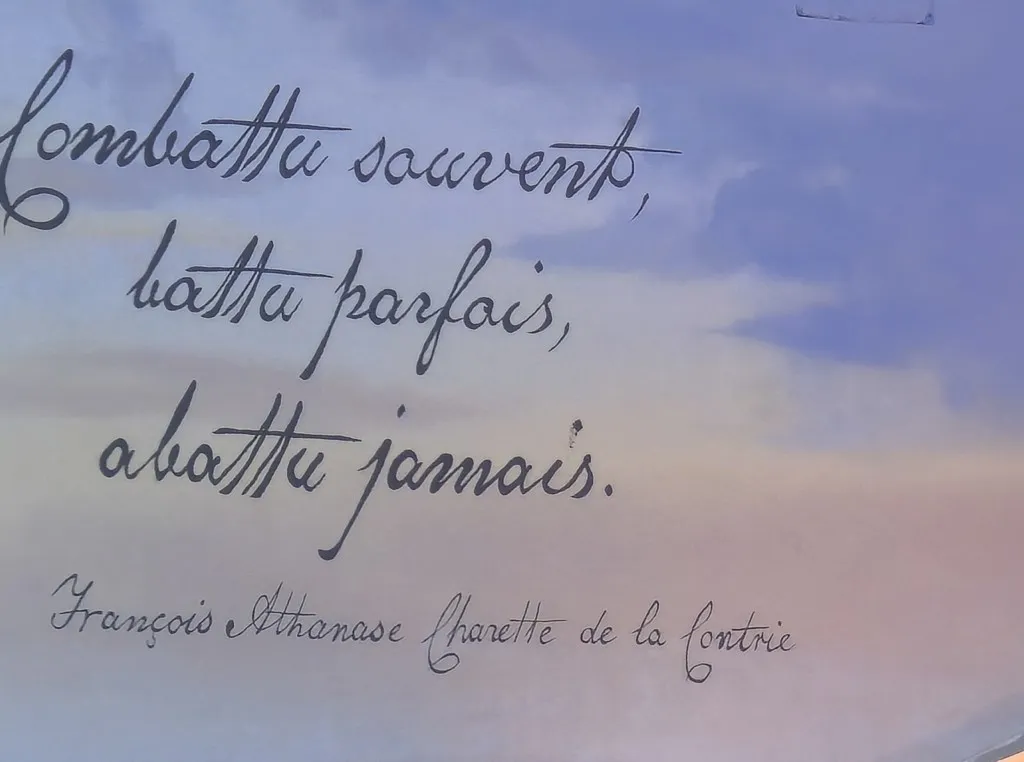 Combattu souvent,
battu parfois,
abattu jamais.
François Athanase Charette de la Contrie